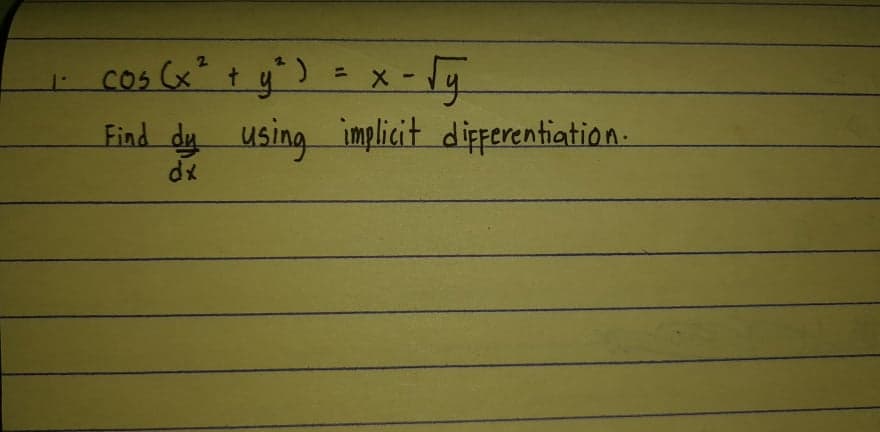 1. cos (x² + y²) = x - √y
Find dy/dx using implicit differentiation.